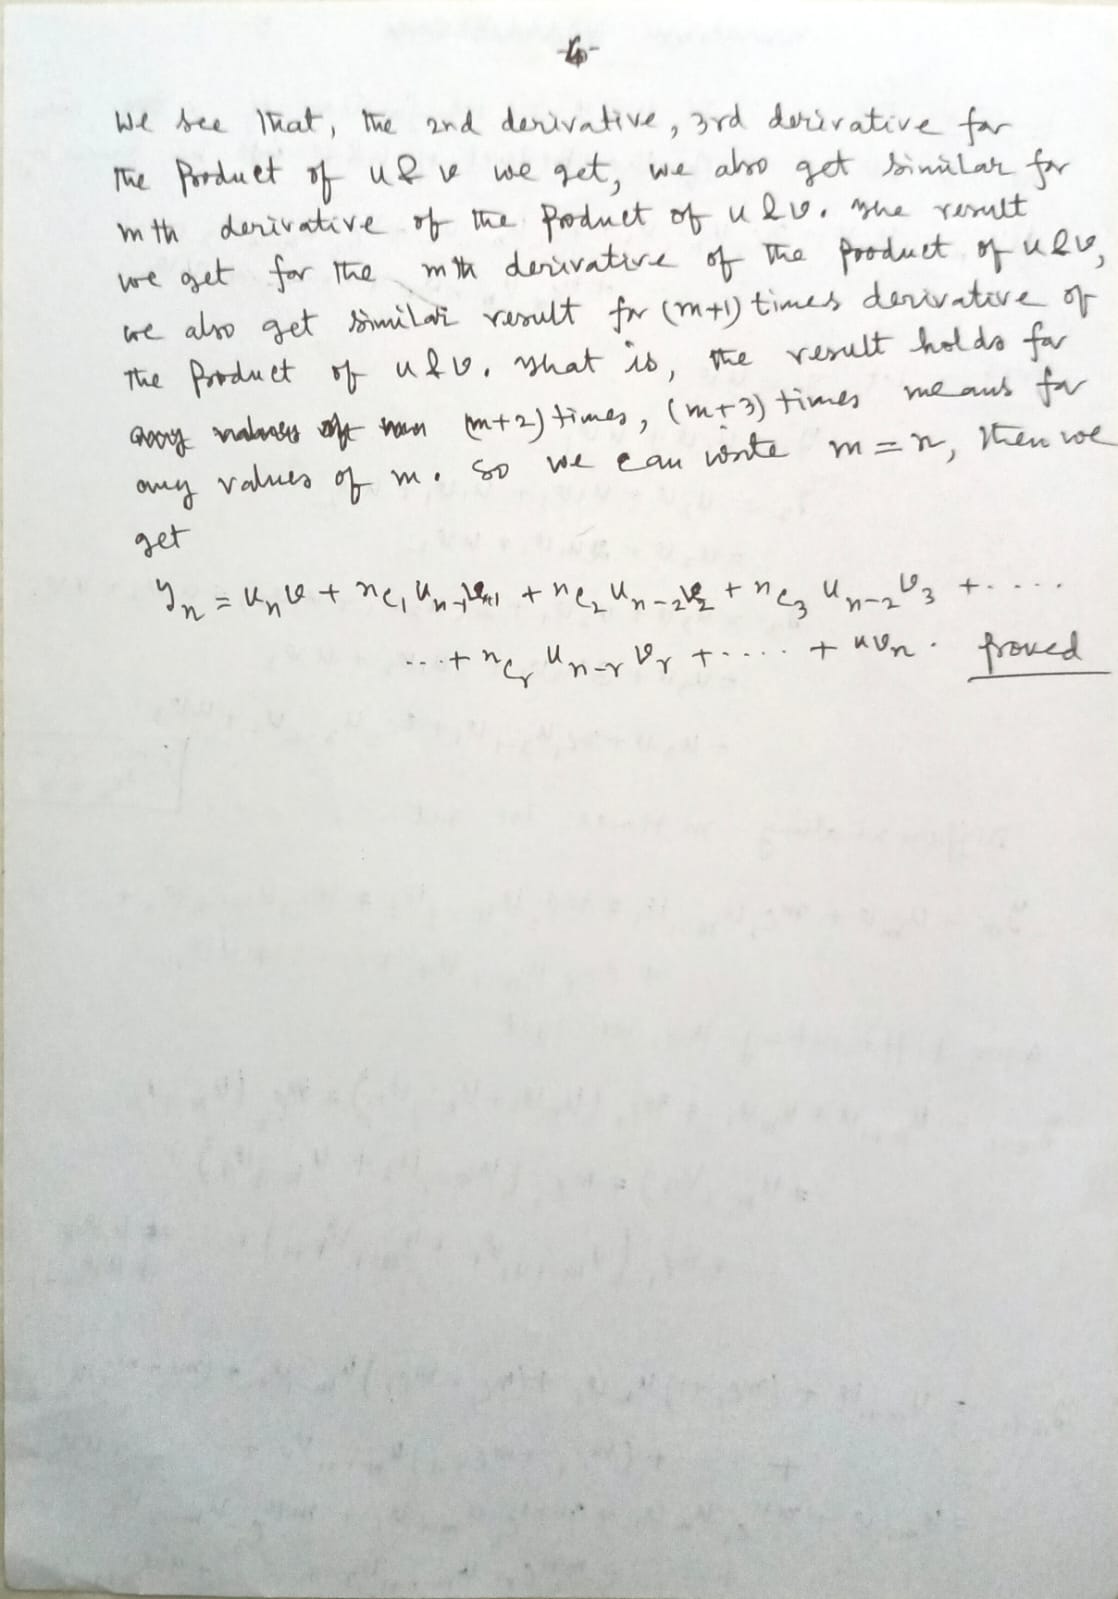 -4-
We see that, the 2nd derivative, 3rd derivative for
the Product of u & v we get, we also get similar for
mth derivative of the Product of u & v. The result
we get for the mth derivative of the product of u & v,
we also get similar result for (m+1) times derivative of
the Product of u & v. That is, the result holds for
(m+2) times, (m+3) times means for
any values of m. So we can write m = n, then we
get
yₙ = uₙv + nc₁ uₙ₋₁v₁ + nc₂ uₙ₋₂v₂ + nc₃ uₙ₋₂v₃ + . . . .
...+ ncᵣ uₙ₋ᵣ vᵣ + . . . . + uvₙ. proved